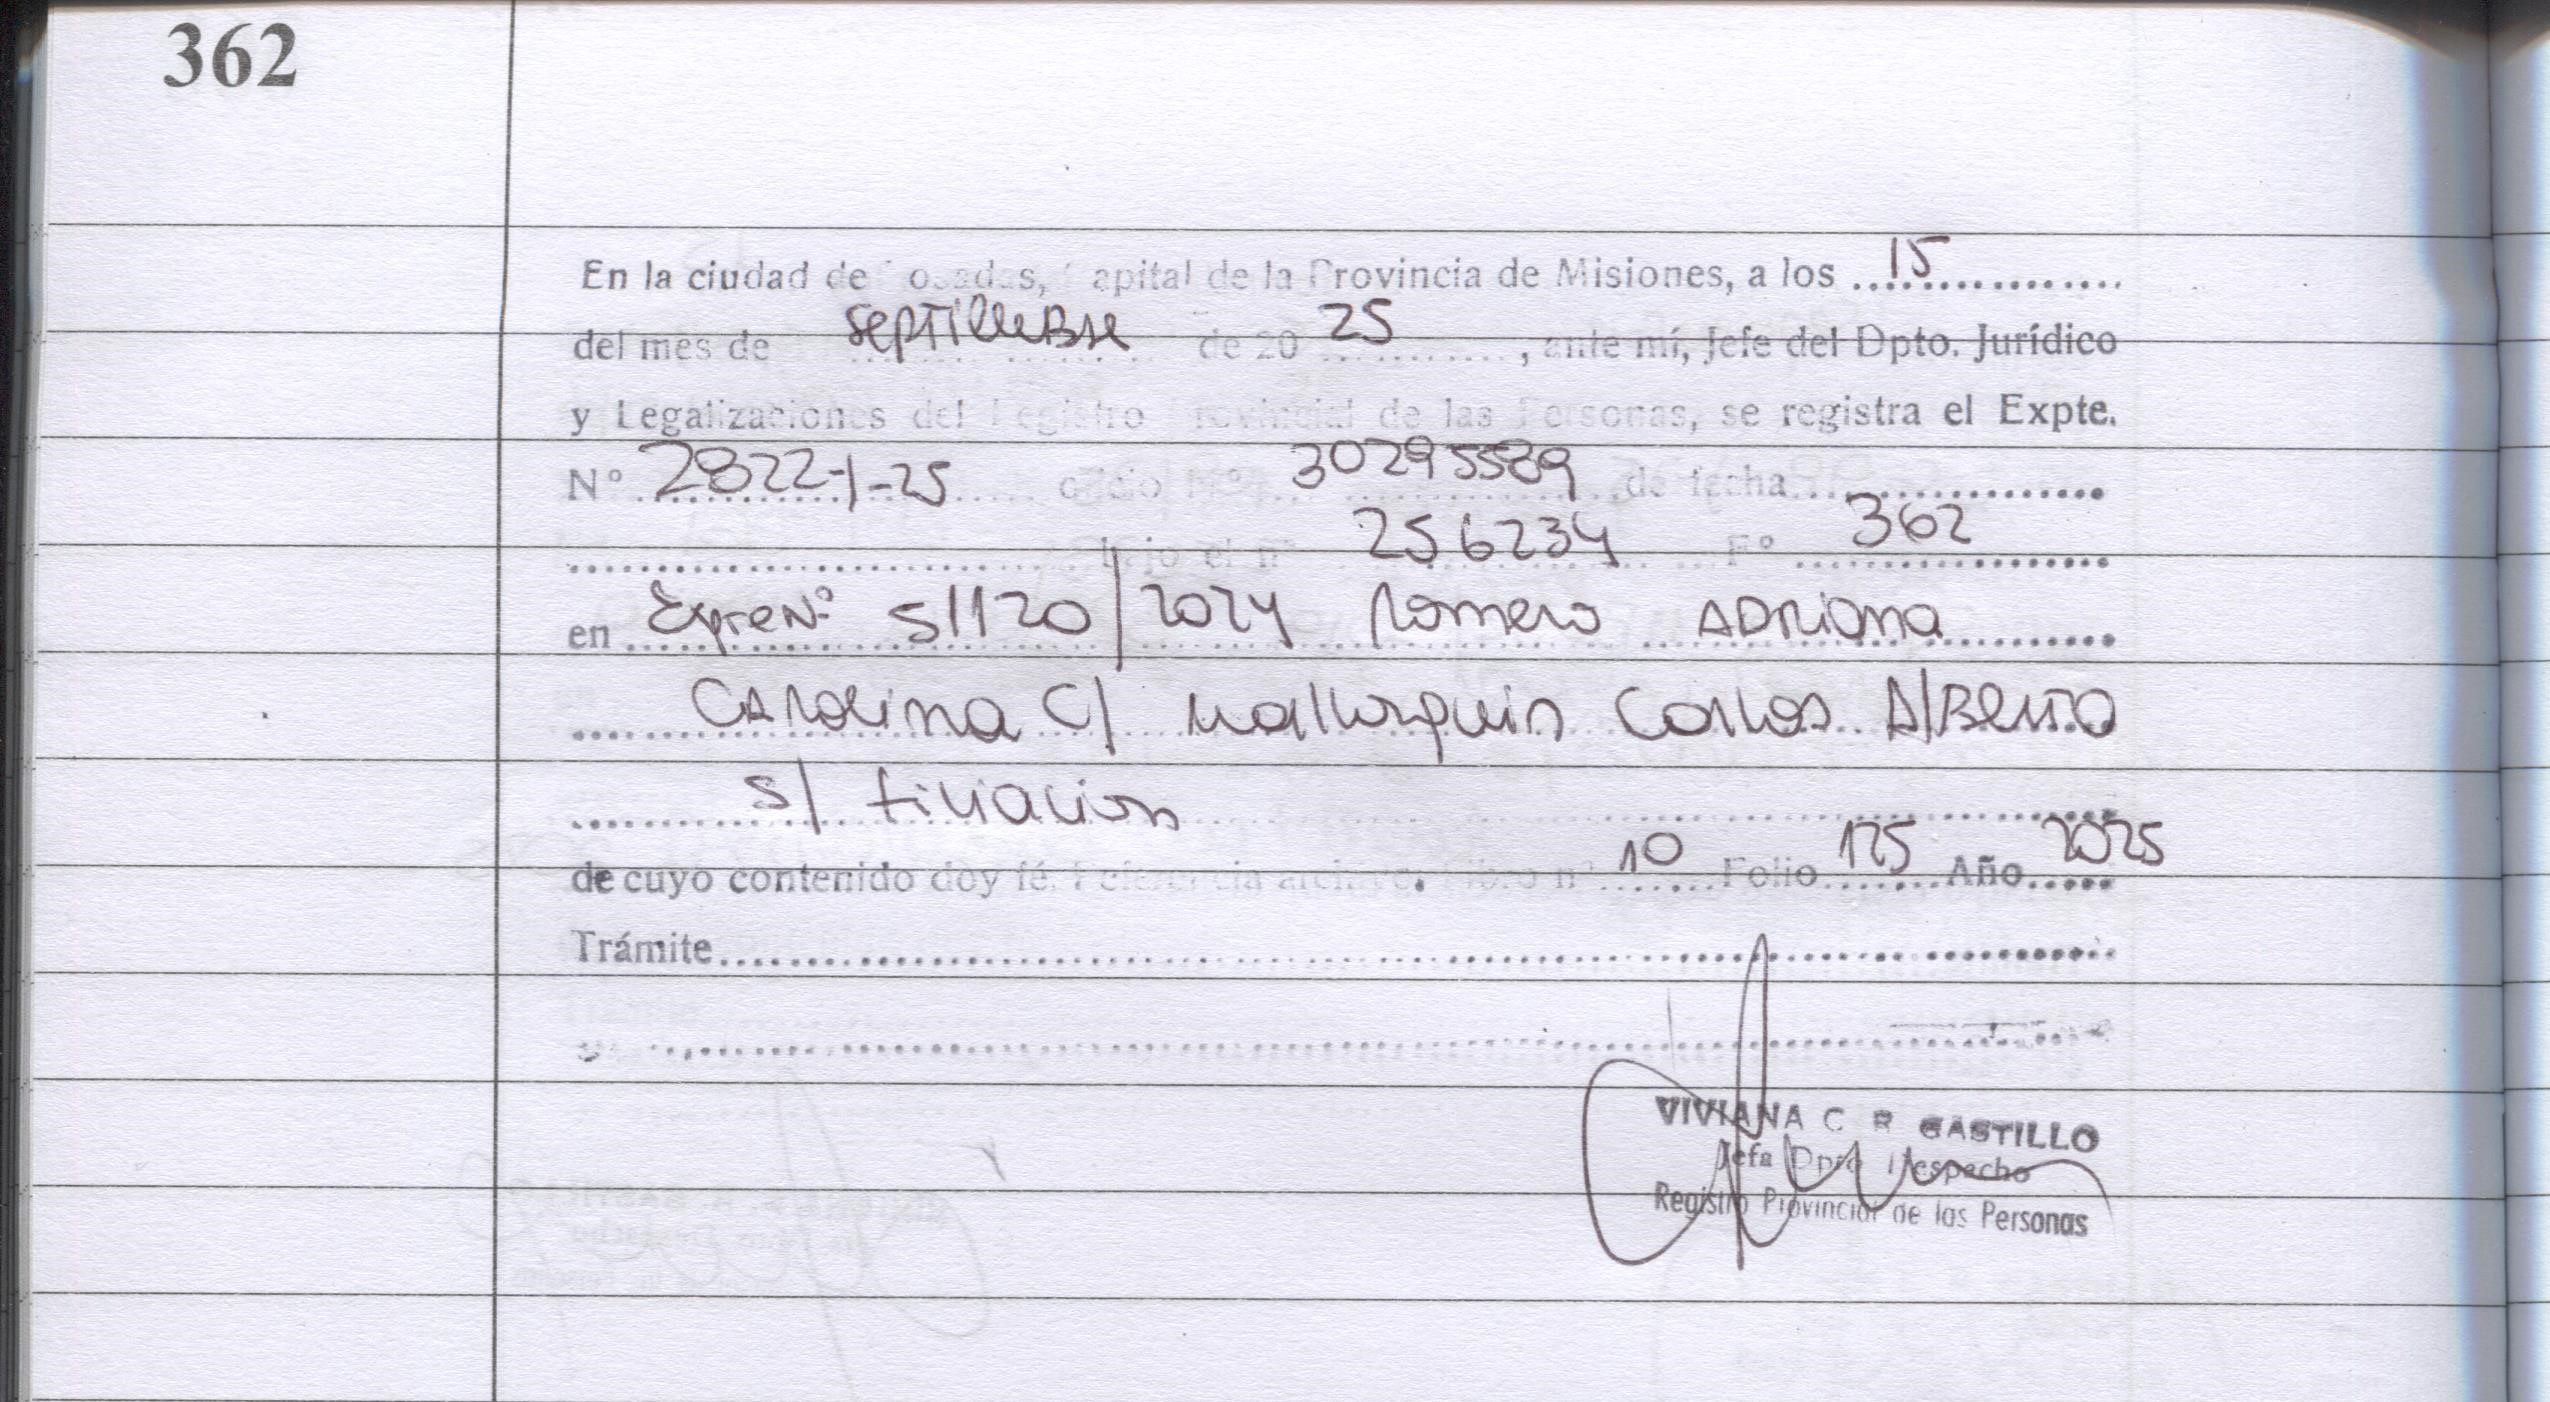 362
En la ciudad de Posadas, Capital de la Provincia de Misiones, a los 15
del mes de septiembre de 20 25, ante mí, Jefe del Dpto. Jurídico
y Legalizaciones del Registro Provincial de las Personas, se registra el Expte.
Nº 2822-1-25 oficio Nº 30295589 de fecha
bajo el nº 256234 Fº 362
en Expte Nº 51120/2024 Romero Adriana
Carolina C/ Mallorquin Carlos Alberto
s/ filiacion
de cuyo contenido doy fé. Referencia archivo. Libro nº 10 Folio 125 Año 2025
Trámite
VIVIANA C R CASTILLO
Jefa Dpto Despacho
Registro Provincial de las Personas